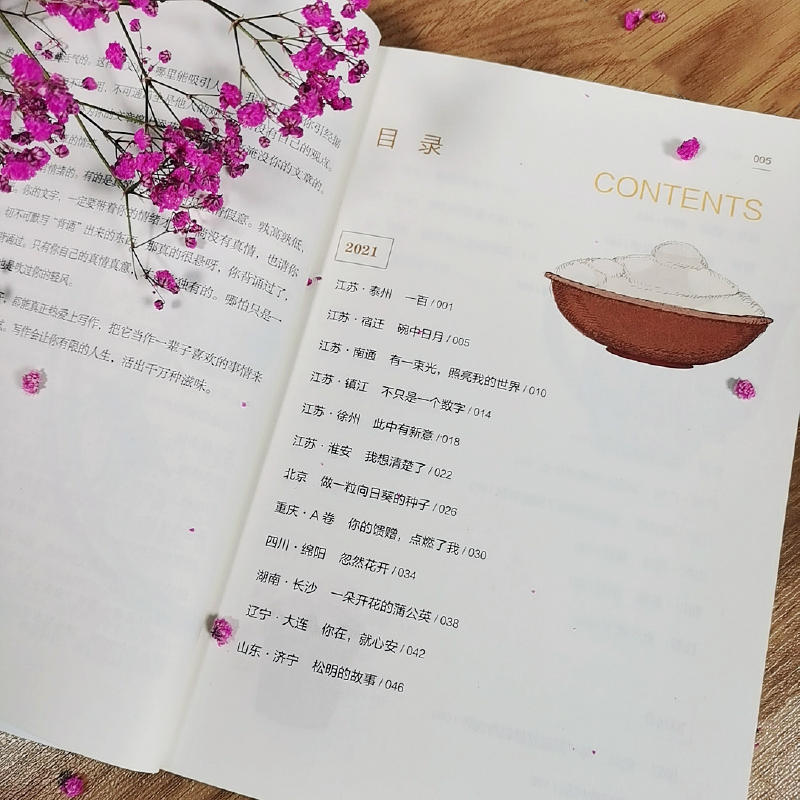 哪里能吸引人
你引经据
没有自己的观况
淹没你的文章的。
情绪的。有的是
假意。孰高孰低，
你的文字，一定要带着你的情绪
而没有真情，也请你
切不可默写“背诵”出来的东西，那真的很悬呀，你背诵过了，
背诵过。只有你自己的真情真意
独有的。哪怕只是一
是吹过你的轻风。
那能真正热爱上写作，把它当作一辈子喜欢的事情来
写作会让你有限的人生，活出千万种滋味。
目 录
005
CONTENTS
2021
江苏·泰州 一百 / 001
江苏·宿迁 碗中日月 / 005
江苏·南通 有一束光，照亮我的世界 / 010
江苏·镇江 不只是一个数字 / 014
江苏·徐州 此中有新意 / 018
江苏·淮安 我想清楚了 / 022
北京 做一粒向日葵的种子 / 026
重庆·A 卷 你的馈赠，点燃了我 / 030
四川·绵阳 忽然花开 / 034
湖南·长沙 一朵开花的蒲公英 / 038
辽宁·大连 你在，就心安 / 042
山东·济宁 松明的故事 / 046